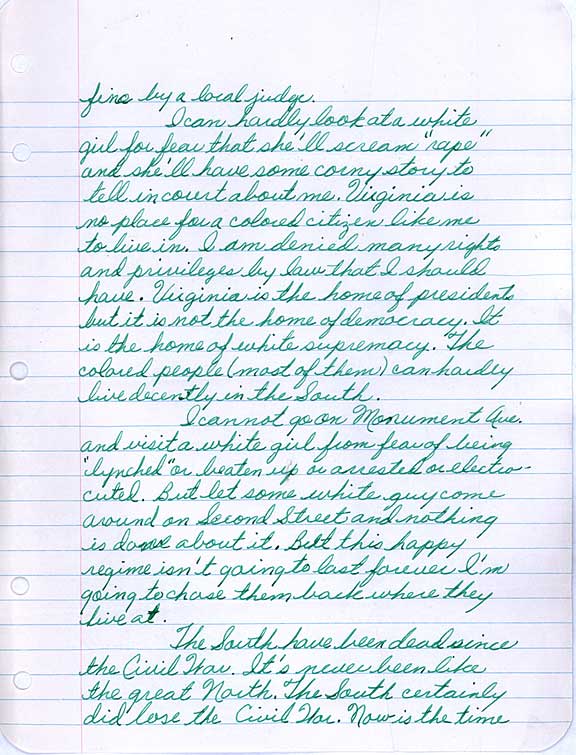 fine by a local judge.
I can hardly look at a white
girl for fear that she'll scream "rape"
and she'll have some corny story to
tell in court about me. Virginia is
no place for a colored citizen like me
to live in. I am denied many rights
and privileges by law that I should
have. Virginia is the home of presidents
but it is not the home of democracy. It
is the home of white supremacy. The
colored people (most of them) can hardly
live decently in the South.
I cannot go on Monument Ave.
and visit a white girl from fear of being
"lynched" or beaten up or arrested or electro-
cuted. But let some white guy come
around on Second Street and nothing
is done about it. But this happy
regime isn't going to last forever I'm
going to chase them back where they
live at.
The South have been dead since
the Civil War. It's never been like
the great North. The South certainly
did lose the Civil War. Now is the time